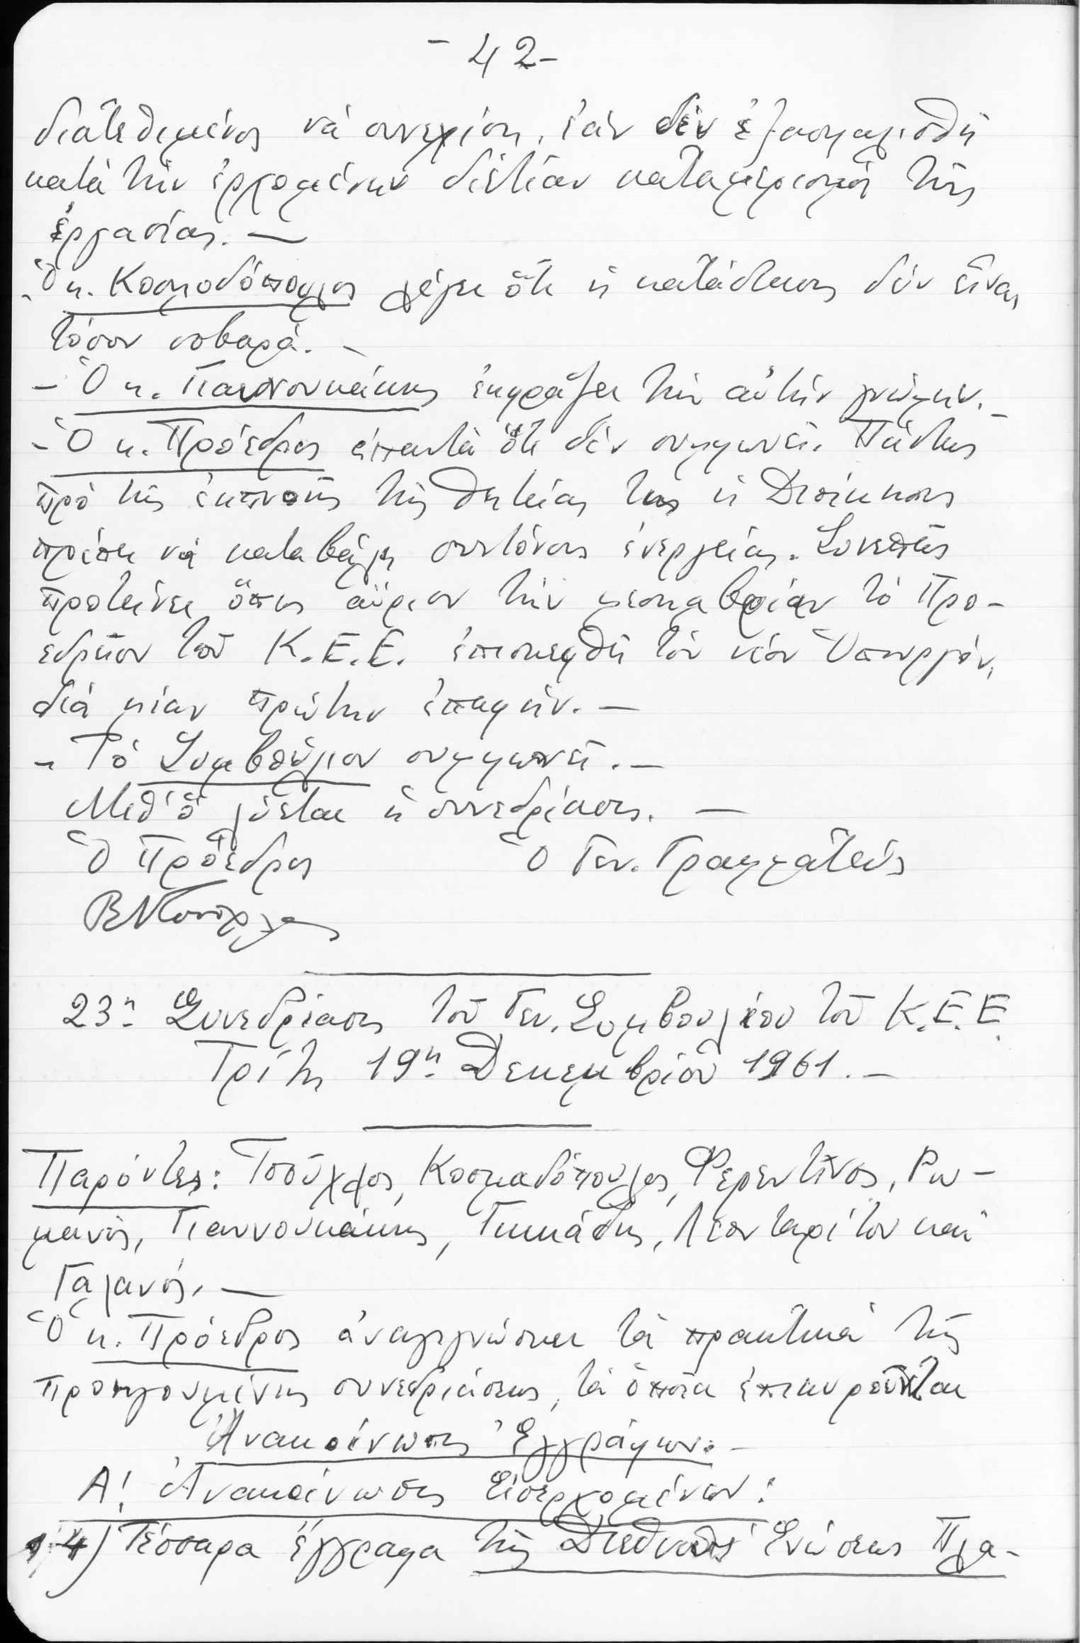 - 42 -
διατεθιμένος νά συνεχίση, ἐάν δέν ἐξασφαλισθῆ
κατά τήν ἐρχομένην διετίαν καταμερισμός τῆς
ἐργασίας. —
Ὁ κ. Κοσμαδόπουλος λέγει ὅτι ἡ κατάστασις δέν εἶναι
τόσον σοβαρά. —
— Ὁ κ. Γιαννουκάκης ἐκφράζει τήν αὐτήν γνώμην. —
— Ὁ κ. Πρόεδρος ἀπαντᾶ ὅτι δέν συμφωνεῖ. Πάντως
πρό τῆς ἐκπνοῆς τῆς θητείας της ἡ Διοίκησις
πρέπει νά καταβάλῃ συντόνους ἐνεργείας. Συνεπῶς
προτείνει ὅπως αὔριον τήν μεσημβρίαν τό Προ-
εδρεῖον τοῦ Κ.Ε.Ε. ἐπισκεφθῆ τόν νέον Ὑπουργόν,
διά μίαν πρώτην ἐπαφήν. —
— Τό Συμβούλιον συμφωνεῖ. —
Μεθ' ὅ λύεται ἡ συνεδρίασις. —
Ὁ Πρόεδρος Ὁ Γεν. Γραμματεύς
23η Συνεδρίασις τοῦ Γεν. Συμβουλίου τοῦ Κ.Ε.Ε.
Τρίτη 19η Δεκεμβρίου 1961. —
Παρόντες: Τσούχλος, Κοσμαδόπουλος, Φερεντῖνος, Ρω-
μανός, Γιαννουκάκης, Γκικάδης, Λεονταρίτου καί
Γαλανός. —
Ὁ κ. Πρόεδρος ἀναγιγνώσκει τά πρακτικά τῆς
προηγουμένης συνεδριάσεως, τά ὁποῖα ἐπικυροῦνται
Ἀνακοίνωσις Ἐγγράφων. —
Α! Ἀνακοίνωσις Εἰσερχομένων:
4) Τέσσαρα ἔγγραφα τῆς Διεθνοῦς Ἑνώσεως Πλα-